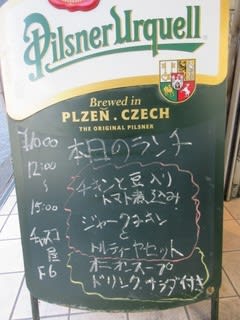 Pilsner Urquell
Brewed in
PLZEŇ . CZECH
THE ORIGINAL PILSNER
本日のランチ
12:00
~
15:00
チキンと豆入り
トマト煮込み
ジャークチキン
と
トルティーヤセット
オニオンスープ
ドリンク サラダ付き